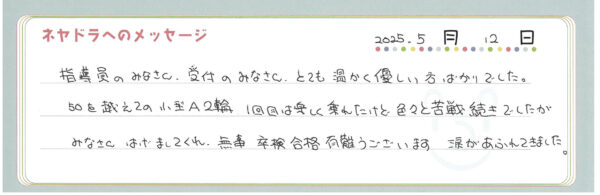 ネヤドラへのメッセージ
2025.5月12日
指導員のみなさん、受付のみなさん、とても温かく優しい方ばかりでした。
50を越えての小型AT二輪 1回目は楽しく乗れたけど色々と苦戦続きでしたが
みなさん はげましてくれ、無事 卒検合格 有難うございます 涙があふれてきました。